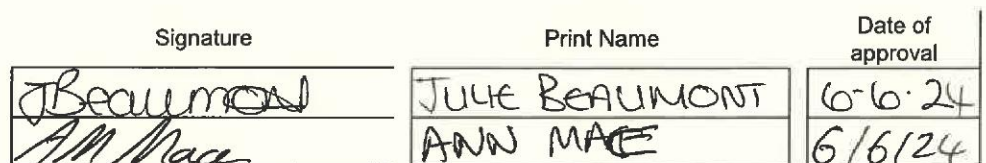 Signature Print Name Date of approval
JBeaumont JULIE BEAUMONT 6-6.24
AM Mace ANN MACE 6/6/24